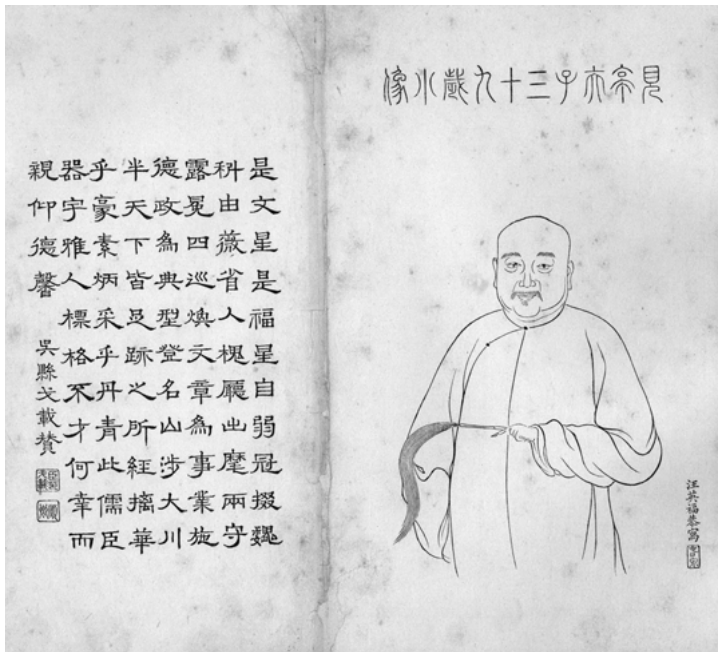 見亭夫子三十九歲小像
汪英福恭寫
是文星是福星自弱冠掇巍
科由薇省入槐廳出麾兩守
露冕四巡煥文章為事業施
德政為典型登名山涉大川
半天下皆足跡之所經摛華
乎豪素炳采乎丹青此儒臣
器宇雅人標格不才何幸而
親仰德馨
吳縣戈載贊